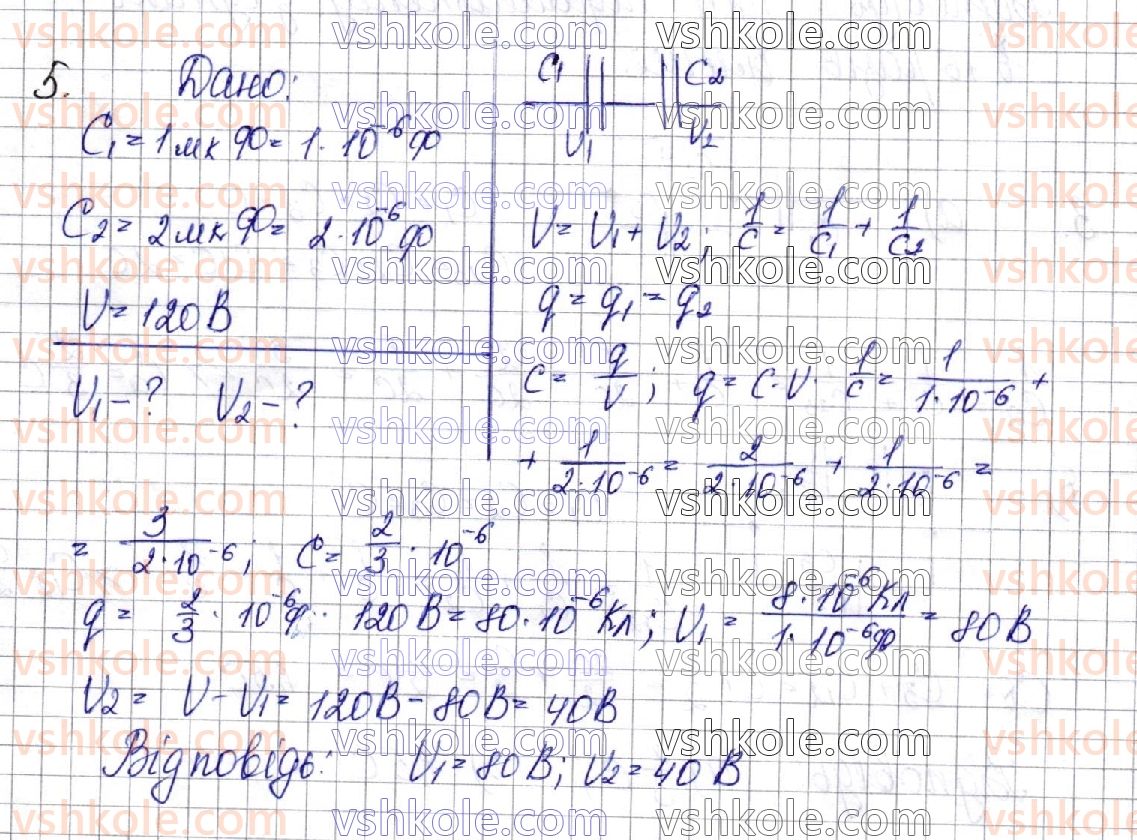 5. Дано:
C₁ = 1 мкФ = 1·10⁻⁶ Ф
C₂ = 2 мкФ = 2·10⁻⁶ Ф
U = 120 В
U₁ - ? U₂ - ?
C₁ C₂
U₁ U₂
U = U₁ + U₂; 1/C = 1/C₁ + 1/C₂
q = q₁ = q₂
C = q/U; q = C·U· 1/C = 1/(1·10⁻⁶) +
+ 1/(2·10⁻⁶) = 2/(2·10⁻⁶) + 1/(2·10⁻⁶) =
= 3/(2·10⁻⁶); C = 2/3·10⁻⁶
q = 2/3·10⁻⁶ Ф·120 В = 80·10⁻⁶ Кл; U₁ = (8·10⁻⁶ Кл)/(1·10⁻⁶ Ф) = 80 В
U₂ = U - U₁ = 120 В - 80 В = 40 В
Відповідь: U₁ = 80 В; U₂ = 40 В
vshkole.com